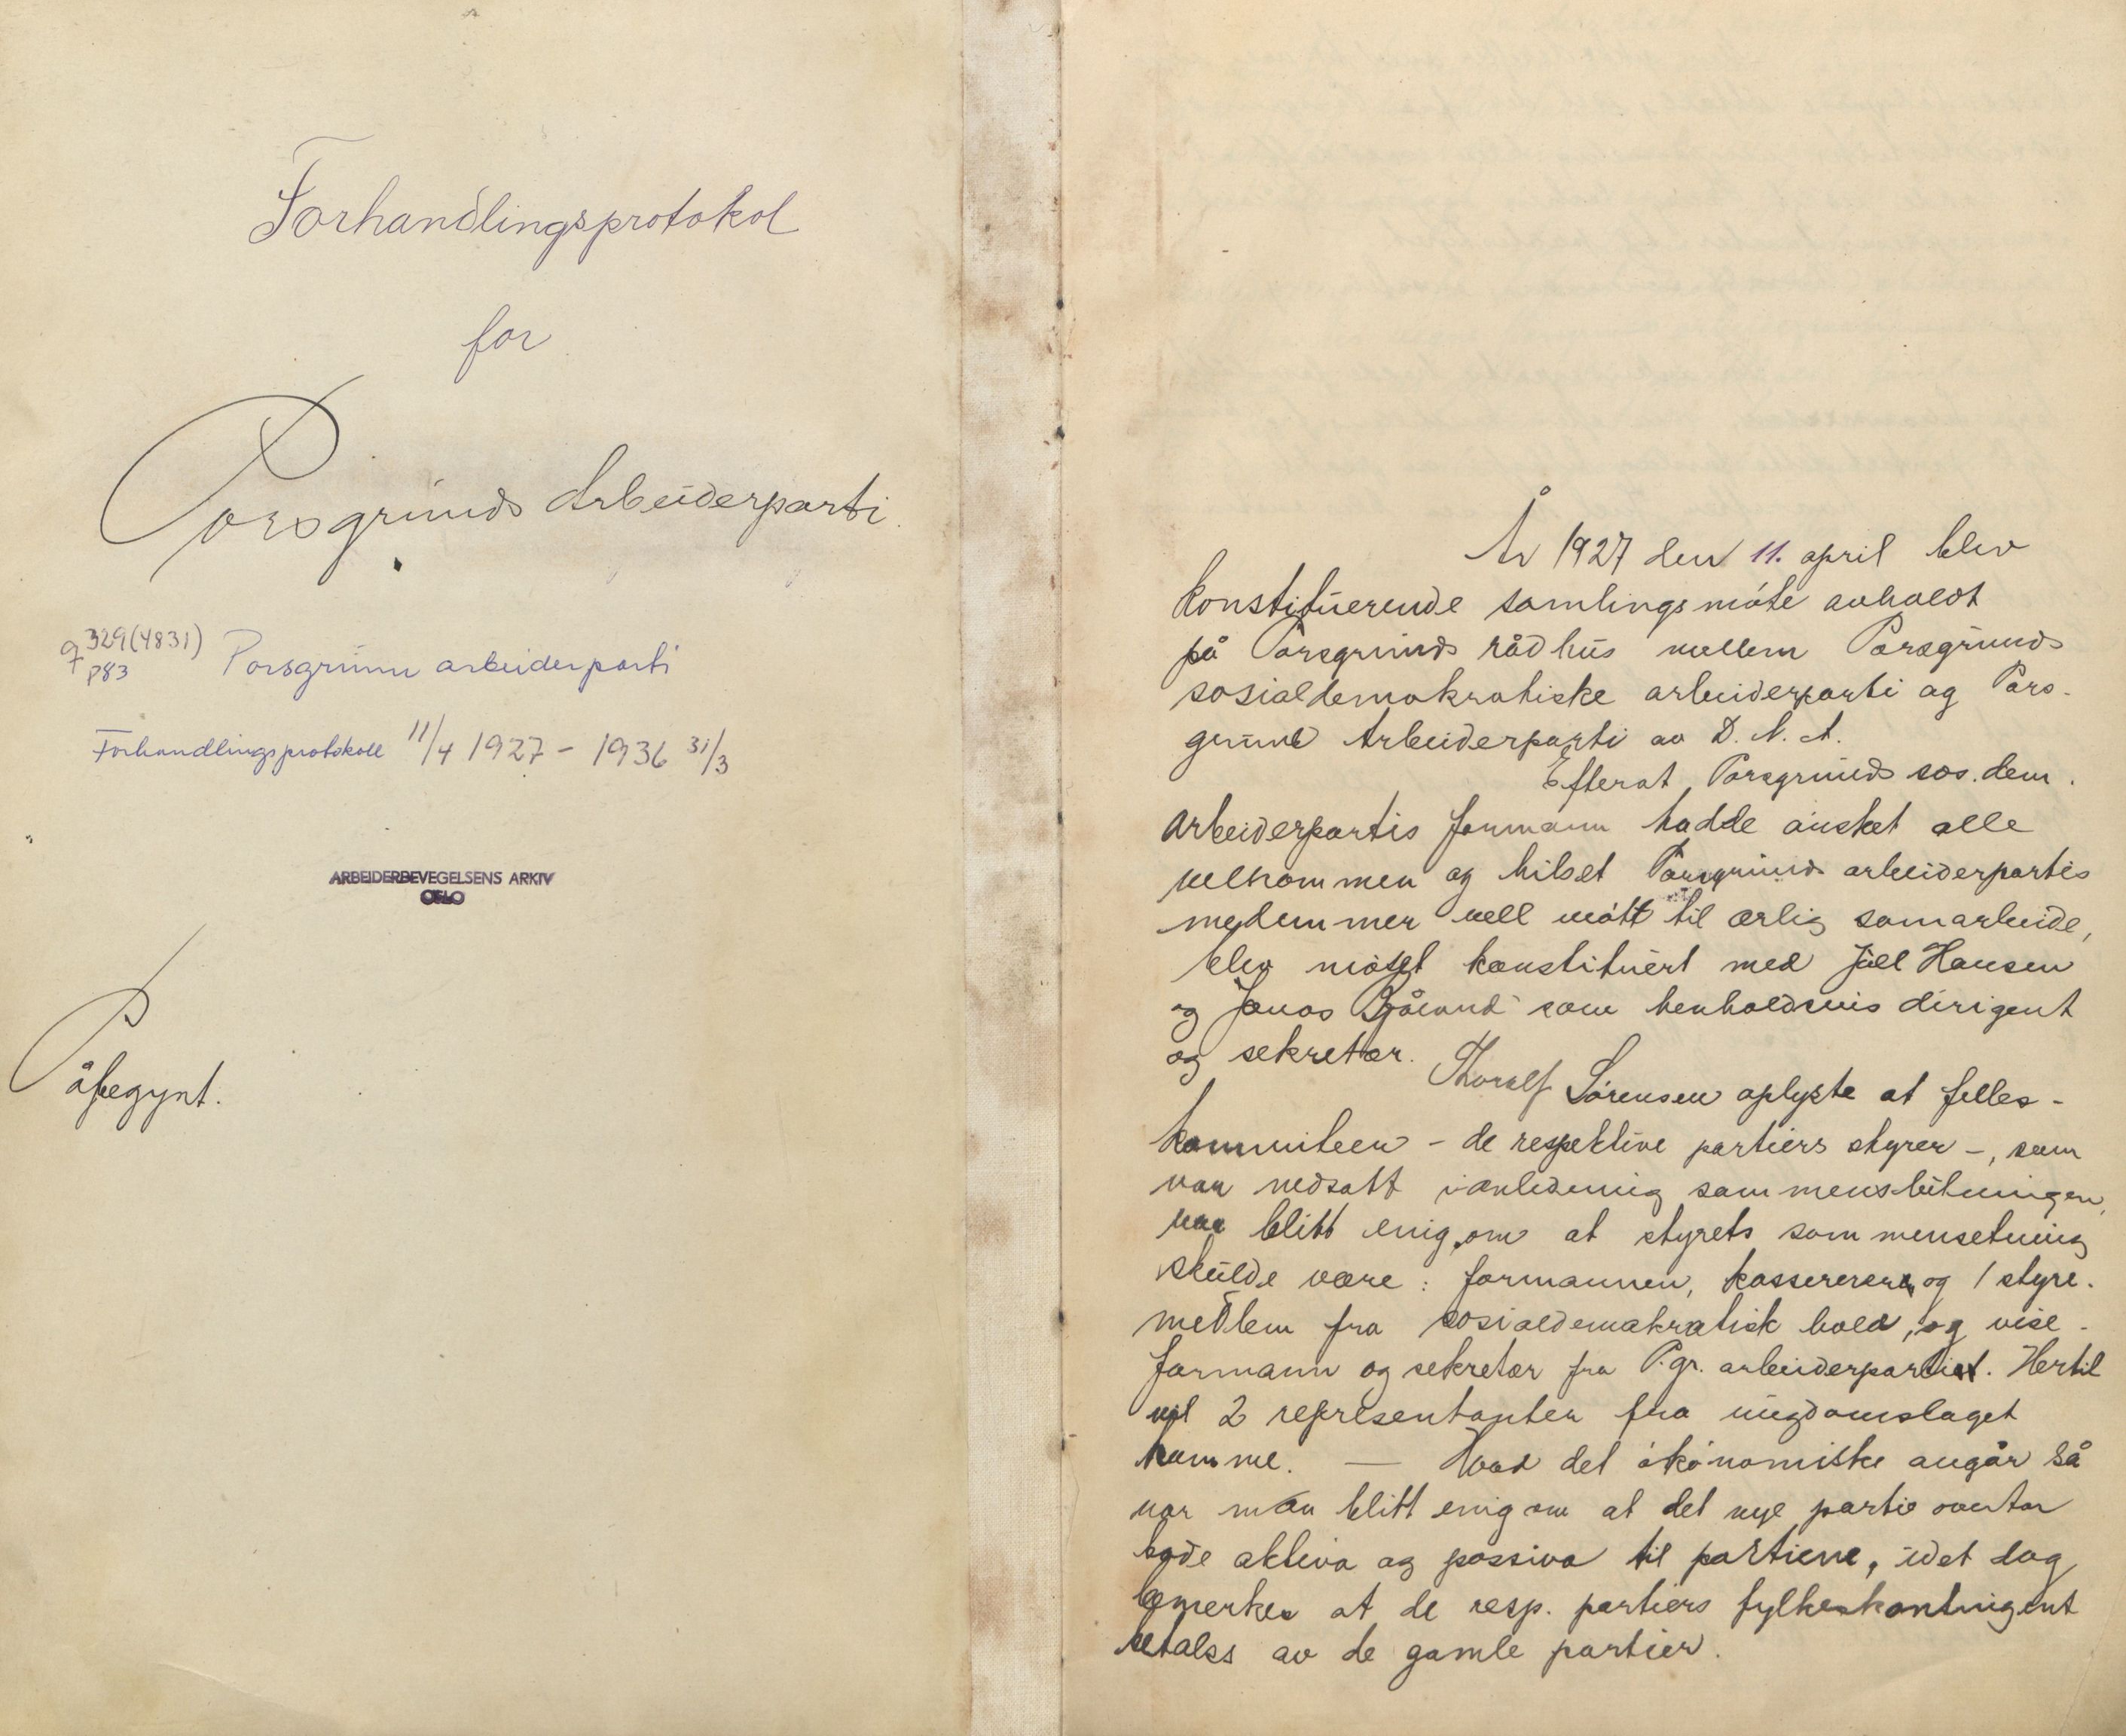 Forhandlingsprotokol
for
Porsgrunds Arbeiderparti.
q 329(4831)
P83
Porsgrunn arbeiderparti
Forhandlingsprotokoll 11/4 1927 - 1936 31/3
ARBEIDERBEVEGELSENS ARKIV
OSLO
Påbegynt.
År 1927 den 11. april blev
konstituerende samlingsmöte avholdt
på Porsgrunds rådhus mellem Porsgrunds
sosialdemokratiske arbeiderparti og Pors-
grund Arbeiderparti av D. N. A.
Efterat Porsgrunds sos. dem.
arbeiderpartis formann hadde önsket alle
velkommen og hilset Porsgrunds arbeiderpartis
medlemmer vell mött til ærlig samarbeide,
blev mötet konstituert med Juel Hansen
og Jonas som henholdsvis dirigent
og sekretær.
Thoralf Sörensen oplyste at felles-
kommiteen - de respektive partiers styrer -, som
var nedsatt i anledning sammenslutningen,
var blitt enig om at styrets sammensetning
skulde være: formannen, kassereren og 1 styre-
medlem fra sosialdemokratisk hold, og vise-
formann og sekretær fra P.gr. arbeiderpartiet. Hertil
vil 2 representanter fra ungdomslaget
komme. — Hvad det ökonomiske angår så
var man blitt enig om at det nye parti overtar
både aktiva og passiva til partiene, idet dog
bemerkes at de resp. partiers fylkeskontingent
betales av de gamle partier.